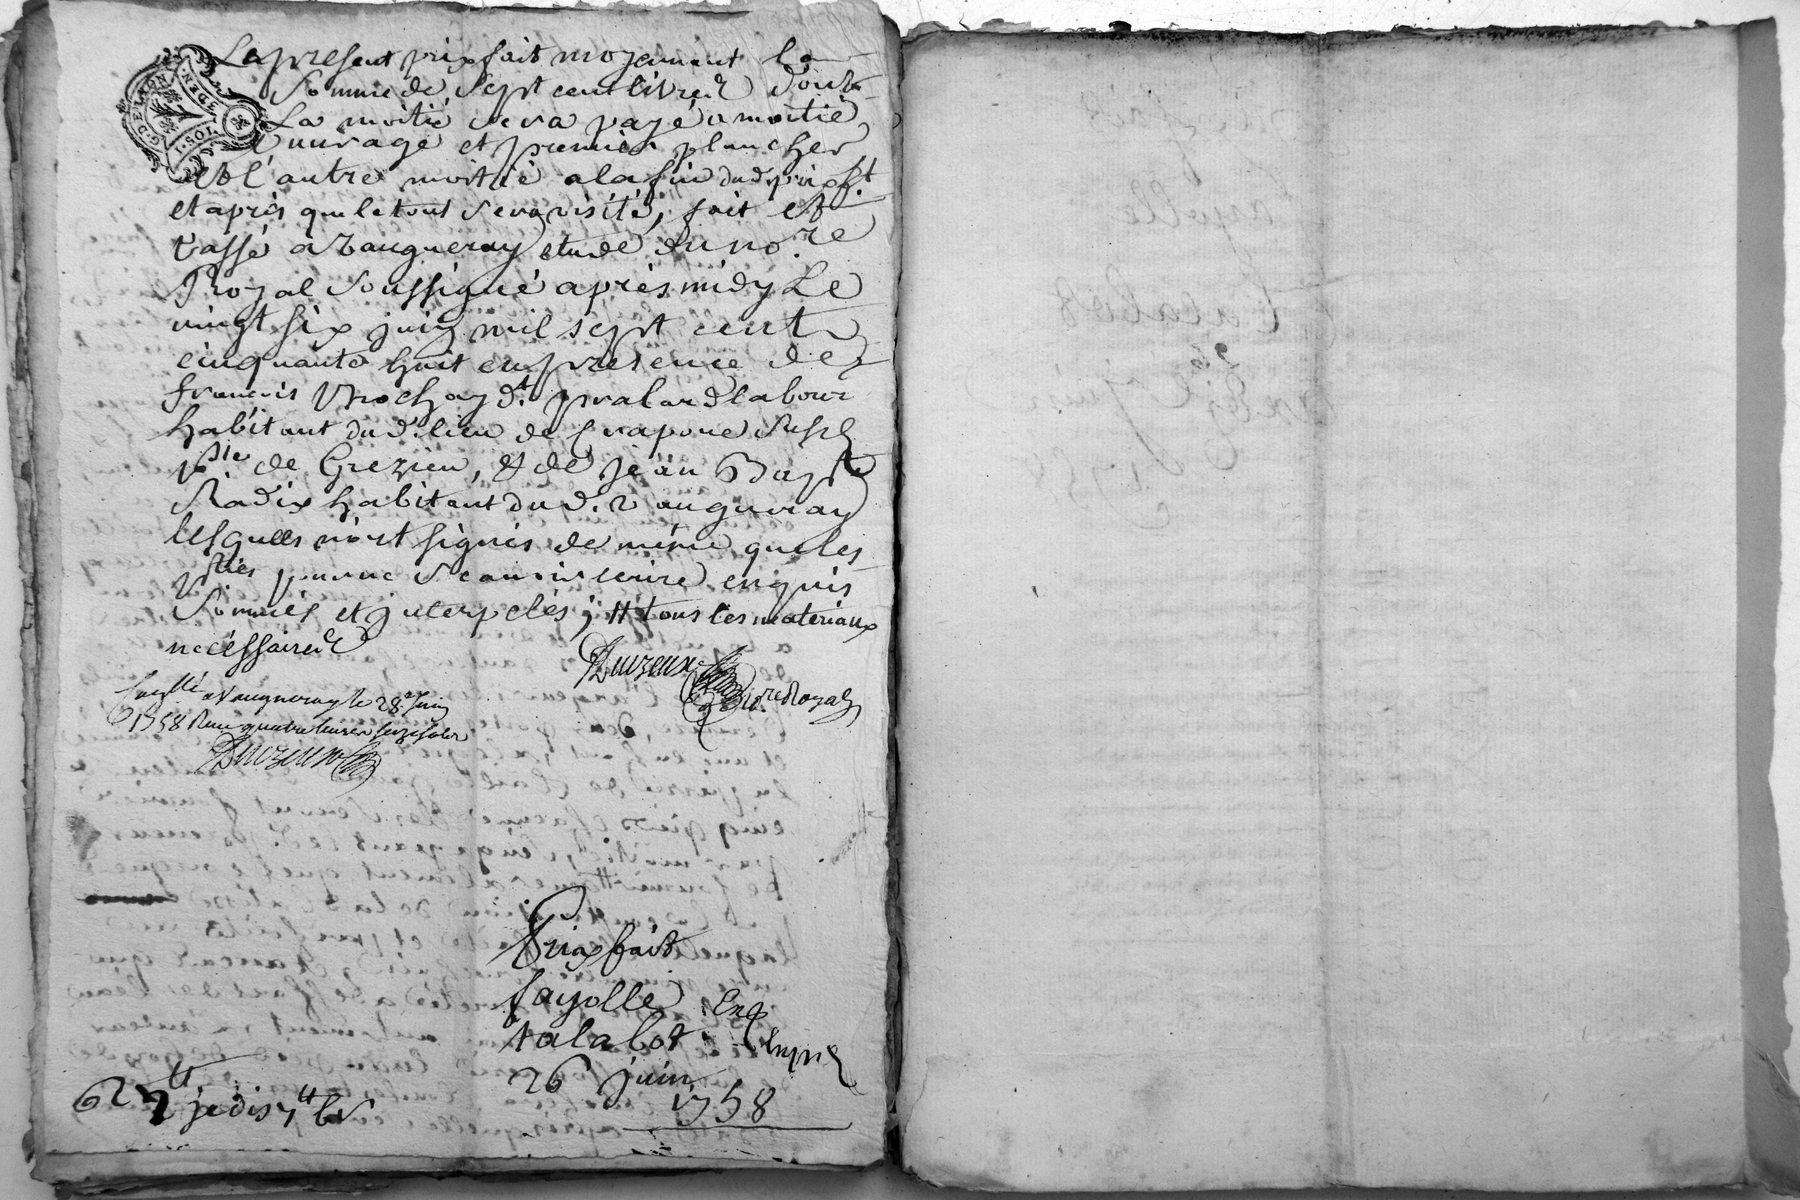 G. D. E LYON
1. SOL
DEN.
Le present prix fait moyennant la
Somme de Sept cent livres dont
La moitié sera payé a moitié
Louvrage et premier plancher
et l'autre moitié a la fin dud. prix ft.
et après que le tout sera visité, fait et
passé a Vaugneray etude du no.re
Royal Soussigné après midy Le
vingt six juin mil sept cent
cinquante huit en presence de
françois Brochay d.t labour
habitant dud. lieu de Craponne
p.sse de Grezieu, & de jean Bapte
Radix habitant dud. Vaugneray
lesquels n'ont signés de même que les
p.ties pour ne Scavoir écrire enquis
Sommés et jnterpelés ; # tous les materiaux
nécéssaires
Duvzeux no.re Royal
a Vaugneray le 28e Juin
1758 Reçu quatre livres seize sols
Duvzeux
Prix fait
fayolle
talabot
Exp
26 juin
1758